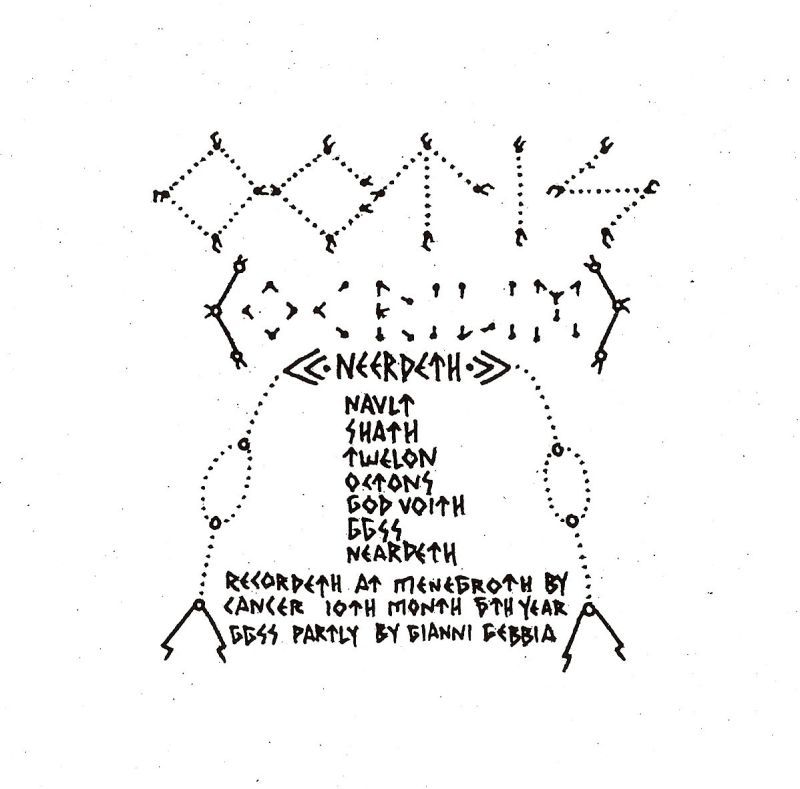 OCTIS
NEERDETH
NAVLT
SHATH
TWELON
OCTONS
GOD VOITH
GGSS
NEARDETH
RECORDETH AT MENEGROTH BY
CANCER 10TH MONTH 6TH YEAR
GGSS PARTLY BY GIANNI GEBBIA